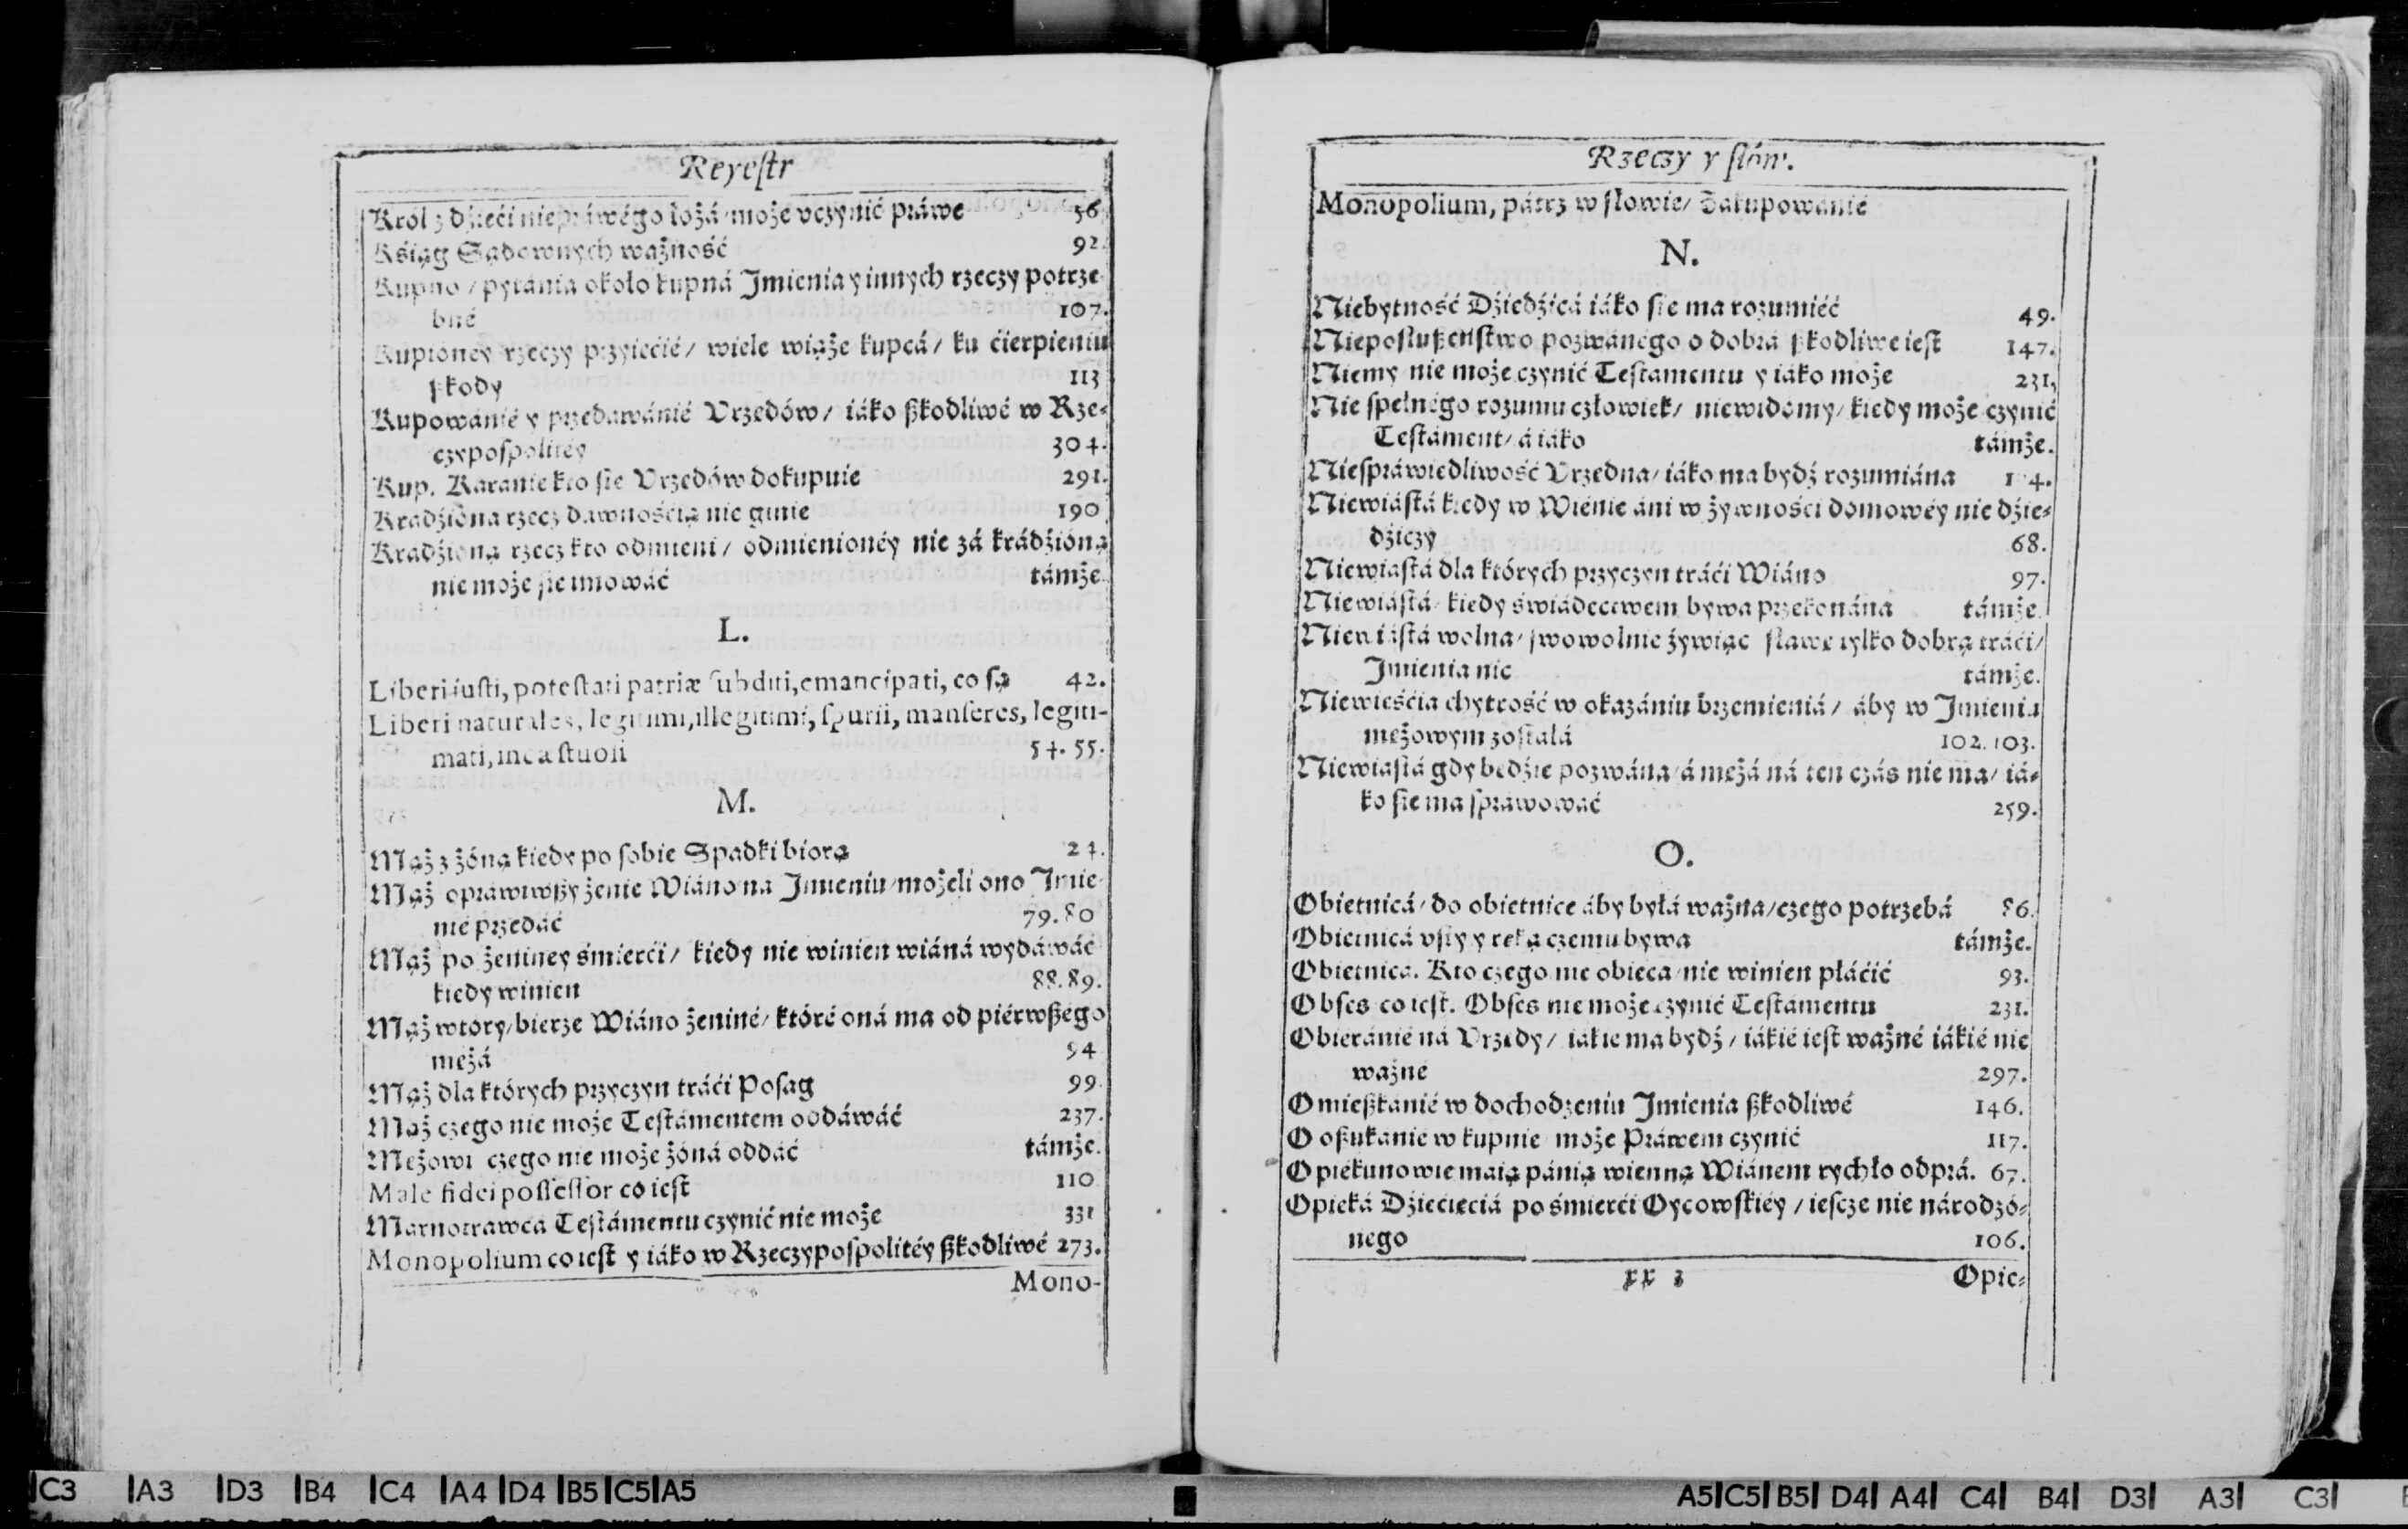 Reyeſtr
Król z dźieći niepráwégo łożá/ może vczynić práwé 56
Kśiąg Sądownych ważność 92.
Kupno / pytánia około kupná Imienia y innych rzeczy potrze-
bné 107.
Kupionéy rzeczy przyięćié/ wiele wiąże kupcá/ ku ćierpieniu
ſzkody 113
Kupowánié y przedawánié Vrzędów/ iáko ßkodliwé w Rze-
czypoſpolitéy 304.
Kup. Karanie kto ſie Vrzędów dokupuie 291.
Kradźiona rzecz dawnośćią nie ginie 190
Kradźioną rzecz kto odmieni / odmienionéy nie zá krádźióną
nie może ſie imowáć támże.
L.
Liberi iuſti, poteſtati patriæ ſubditi, emancipati, co ſą 42.
Liberi naturales, legitimi, illegitimi, ſpurii, manſeres, legiti-
mati, incæſtuoſi 54. 55.
M.
Mąż z żóną kiedy po ſobie Spadki biorą 24.
Mąż opráwiwßy żenie Wiáno na Imieniu/ możeli ono Imie-
nie przedáć 79. 80
Mąż po żeninéy śmierći/ kiedy nie winien wiáná wydáwáć
kiedy winien 88. 89.
Mąż wtóry/ bierze Wiáno żeniné/ któré oná ma od piérwßégo
mężá 94
Mąż dla których przyczyn tráći Poſag 99.
Mąż czego nie może Teſtámentem oddáwáć 237.
Mężowi czego nie może żóná oddáć támże.
Male fidei poſſeſſor co ieſt 110
Marnotrawca Teſtámentu czynić nie może 331
Monopolium co ieſt y iáko w Rzeczypoſpolitéy ßkodliwé 273.
Mono-
Rzeczy y ſłów.
Monopolium, pátrz w ſłowie/ Zakupowánié
N.
Niebytność Dźiedźicá iáko ſie ma rozumiéć 49.
Niepoſłußeńſtwo pozwánégo o dobrá ßkodliwe ieſt 147.
Niemy nie może czynić Teſtamentu y iáko może 231,
Nie ſpełnégo rozumu człowiek/ niewidomy/ kiedy może czynić
Teſtáment/ á iáko támże.
Nieſpráwiedliwość Vrzędna/ iáko ma bydź rozumiána
Niewiáſtá kiedy w Wienie áni w żywnośći domowéy nie dźie-
dźiczy 68.
Niewiaſtá dla których przyczyn tráći Wiáno 97.
Niewiáſtá/ kiedy świádectwem bywa przekonána támże.
Niewiáſtá wolna/ ſwowolnie żywiąc ſławę tylko dobrą tráći/
Imienia nic támże.
Niewieśćia chytrość w okazániu brzemieniá/ áby w Imieniu
mężowym zoſtałá 102. 103.
Niewiaſtá gdy będźie pozwána/ á mężá ná ten czás nie ma/ iá-
ko ſie ma ſpráwowáć 259.
O.
Obietnicá/ do obietnice áby byłá ważna/ czego potrzebá 86.
Obietnicá vſty y ręką czemu bywa támże.
Obietnica. Kto czego nie obieca/ nie winien płáćić 93.
Obſes co ieſt. Obſes nie może czynić Teſtámentu 231.
Obieránié ná Vrzędy/ iákie ma bydź / iákié ieſt ważné iákié nie
ważne 297.
Omießkánié w dochodzeniu Imienia ßkodliwé 146.
O oßukánie w kupnie może Práwem czynić 117.
Opiékunowie maią pánią wienną Wiánem rychło odprá. 67.
Opieká Dźiećięćiá po śmierći Oycowſkiéy / ieſcze nie národzó-
nego 106.
xx 3
Opie-